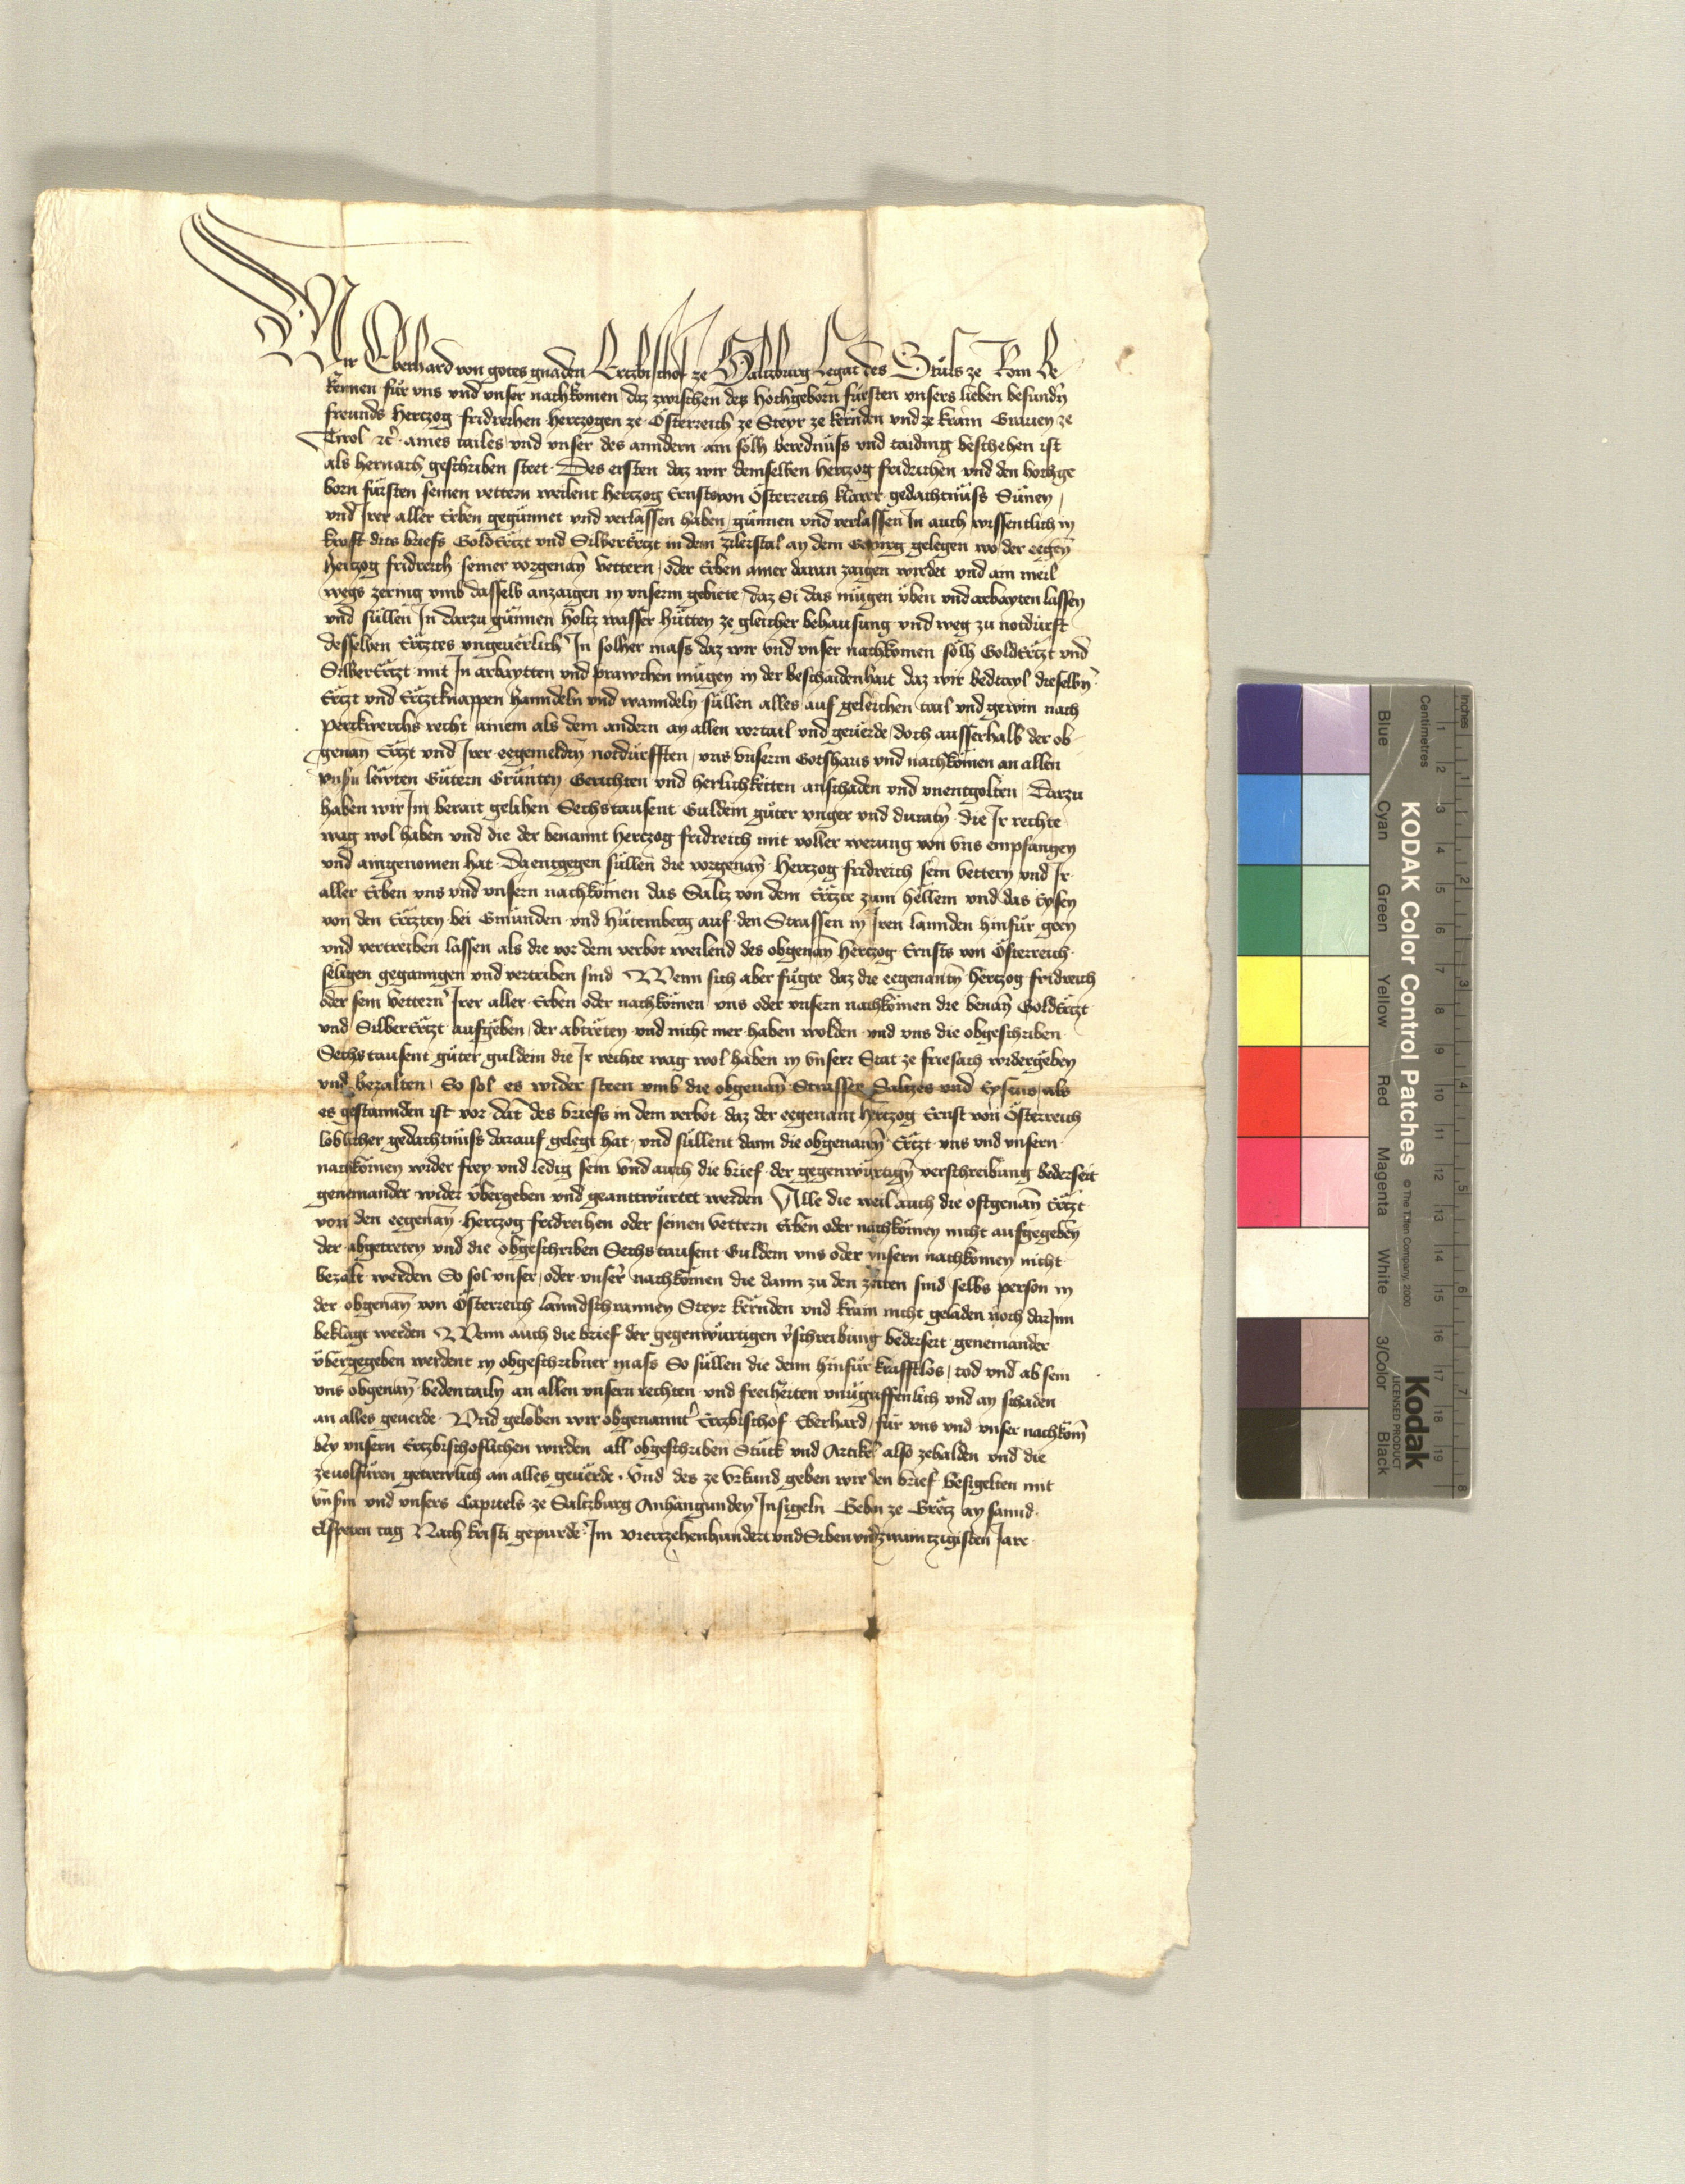 Wir Eberhard von gotes gnaden Ertzbischof ze Saltzburg Legat des Stůls ze Rom be
kennen fůr vns vnd vnser nachkomen daz zwischen des hochgeborn fůrsten vnsers lieben besundn̄
freunds Hertzog fridreichen hertzogen ze Österreich ze Steyr ze kërnden vnd ze krain Grauen ze
Tirol ꝛc̄ aines tailes vnd vnser des anndern ain sölh berednůss vnd taiding beschehen ist
als hernach geschriben steet Des ersten daz wir demselben hertzog fridrichen vnd den hochge
born fůrsten seinen vettern weilent hertzog Ernsts von Österreich klarer gedachtnůss Sůnen
vnd Irer aller Erben gegůnnet vnd verlassen haben gůnnen vnd verlassen In auch wissentlich in
kraft dits briefs GoldËrtzt vnd SilberËrtzt in dem zilerstal an dem Gepirg gelegen wo der eegen̄
hertzog fridreich seiner vorgenan̄ vettern oder Erben ainer daran zaigen wirdet vnd ain meil
wegs zering vmb dasselb anzaigen in vnserm gebiete daz Si das můgen ůben vnd arbayten lassen
vnd sůllen In darzu gůnnen holtz wasser hůtten ze gleicher behausung vnd weg zu notdurft
desselben Ërtztes vngeuërlich In solher mass daz wir vnd vnser nachkomen sölh GoldËrtzt vnd
SilberËrtzt mit In arbaytten vnd prawchen můgen in der beschaidenhait daz wir bedtayl dieselbn̄
Ërtzt vnd Ërtztknappen hanndeln vnd wanndeln sůllen alles auf geleichen tail vnd gewin nach
perckwerchs recht ainem als dem andern an allen vortail vnd geuërde doch ausserhalb der ob
genan̄ Ërtzt vnd Irer eegemeldn̄ notdůrfften vns vnserm Gotshaus vnd nachkomen an allen
vnsn̄ lewten Gůtern Grůnten Gerichten vnd herlichkeiten anschaden vnd vnentgolten Darzu
haben wir Im berait gelihen Sechstausent Guldein gůter vnger vnd ducatn̄ die Ir rechte
wag wol haben vnd die der benannt hertzog fridreich mit voller werung von vns empfangen
vnd aingenomen hat Da entgegen sůllen die vorgenan̄ hertzog fridreich sein vettern vnd Ir
aller Erben vns vnd vnsern nachkömen das Saltz von dem Ërtzte zum hëllein vnd das Eysen
von den Ërtzten bei Gmünden vnd hůtemberg auf den Strassen in Iren lannden hinfůr geen
vnd vertreiben lassen als die vor dem verbot weilend des obgenan̄ hertzog Ernsts von Österreich
seligen geganngen vnd vertriben sind Wenn sich aber fůgte daz die eegenantn̄ hertzog fridreich
oder sein vettern Irer aller Erben oder nachkömen vns oder vnsern nachkömen die benan̄ GoldËrtzt
vnd SilberËrtzt aufgëben der abtrëten vnd nicht mer haben wolden vnd vns die obgeschriben
Sechstausent gůter guldein die Ir rechte wag wol haben in vnserr Stat ze friesach widergëben
vnd bezalten So sol es wider steen vmb die obgenan̄ Strasser Saltzes vnd Eysens als
es gestannden ist vor dat̄ des briefs in dem verbot daz der eegenant hertzog Ernst von Österreich
loblicher gedachtnůss darauf gelegt hat vnd sůllent dann die obgenann̄ Ërtzt vns vnd vnsern
nachkömen wider frey vnd ledig sein vnd auch die brief der gegenwůrtign̄ verschreibung bederseit
geneinander wider ůbergeben vnd geanttwůrtet werden Alle die weil auch die oftgenan̄ Ërtzt
von den eegenan̄ hertzog fridreichen oder seinen vettern Erben oder nachkömen nicht aufgegeben
der abgetreten vnd die obgeschriben Sechstausent Guldein vns oder vnsern nachkomen nicht
bezalt werden So sol vnser oder vnserr nachkömen die dann zu den zeiten sind selbs person in
der obgenan̄ von Österreich lanndschrannen Steyr kërnden vnd krain nicht geladen noch darInn
beklagt werden Wenn auch die brief der gegenwůrtigen v̄schreibung bederseit geneinander
ůbergegeben werdent in obgeschribner mass So sůllen die denn hinfůr krafftlos tod vnd ab sein
vns obgenan̄ bedentailn an allen vnsern rechten vnd freiheiten vnuergriffenlich vnd an schaden
an alles geuerde Vnd geloben wir obgenannt̄ Ertzbischof Eberhard fůr vns vnd vnser nachkom̄
bey vnsern Ertzbischoflichen wirden all obgeschriben Stůck vnd Artikel also zehalden vnd die
zeuolfůren getrewlich an alles geuërde Vnd des ze vrkund geben wir den brief besigelten mit
vnsm̄ vnd vnsers Capitels ze Saltzburg Anhangunden Insigeln Gebn̄ ze Grëtz an sannd
Elspeten tag Nach kristi gepurde Im viertzehenhundert vnd Siben vnd zwaintzigisten Jare
KODAK Color Control Patches
© The Tiffen Company, 2000
Kodak
LICENSED PRODUCT
Blue Cyan Green Yellow Red Magenta White 3/Color Black
Inches 1 2 3 4 5 6 7 8
Centimetres 1 2 3 4 5 6 7 8 9 10 11 12 13 14 15 16 17 18 19